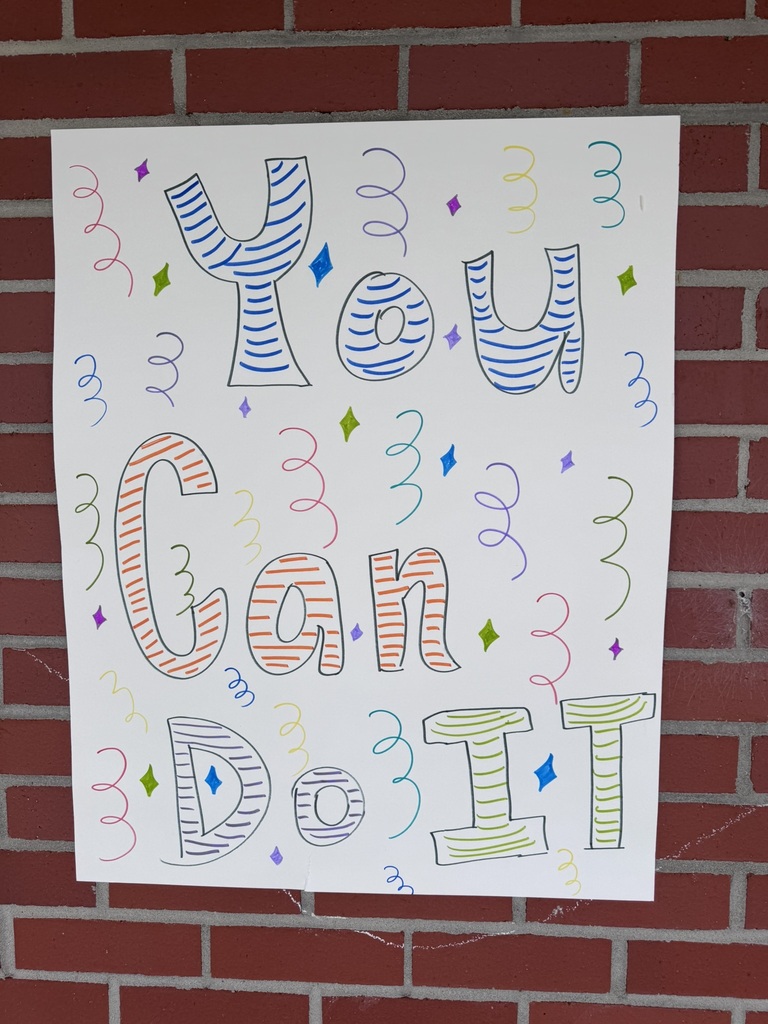 You
Can
Do IT